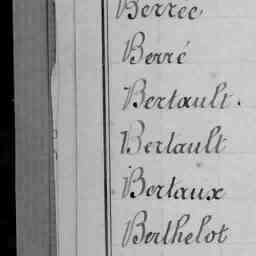 Berrée
Berré
Bertault.
Bertault
Bertaux
Berthelot